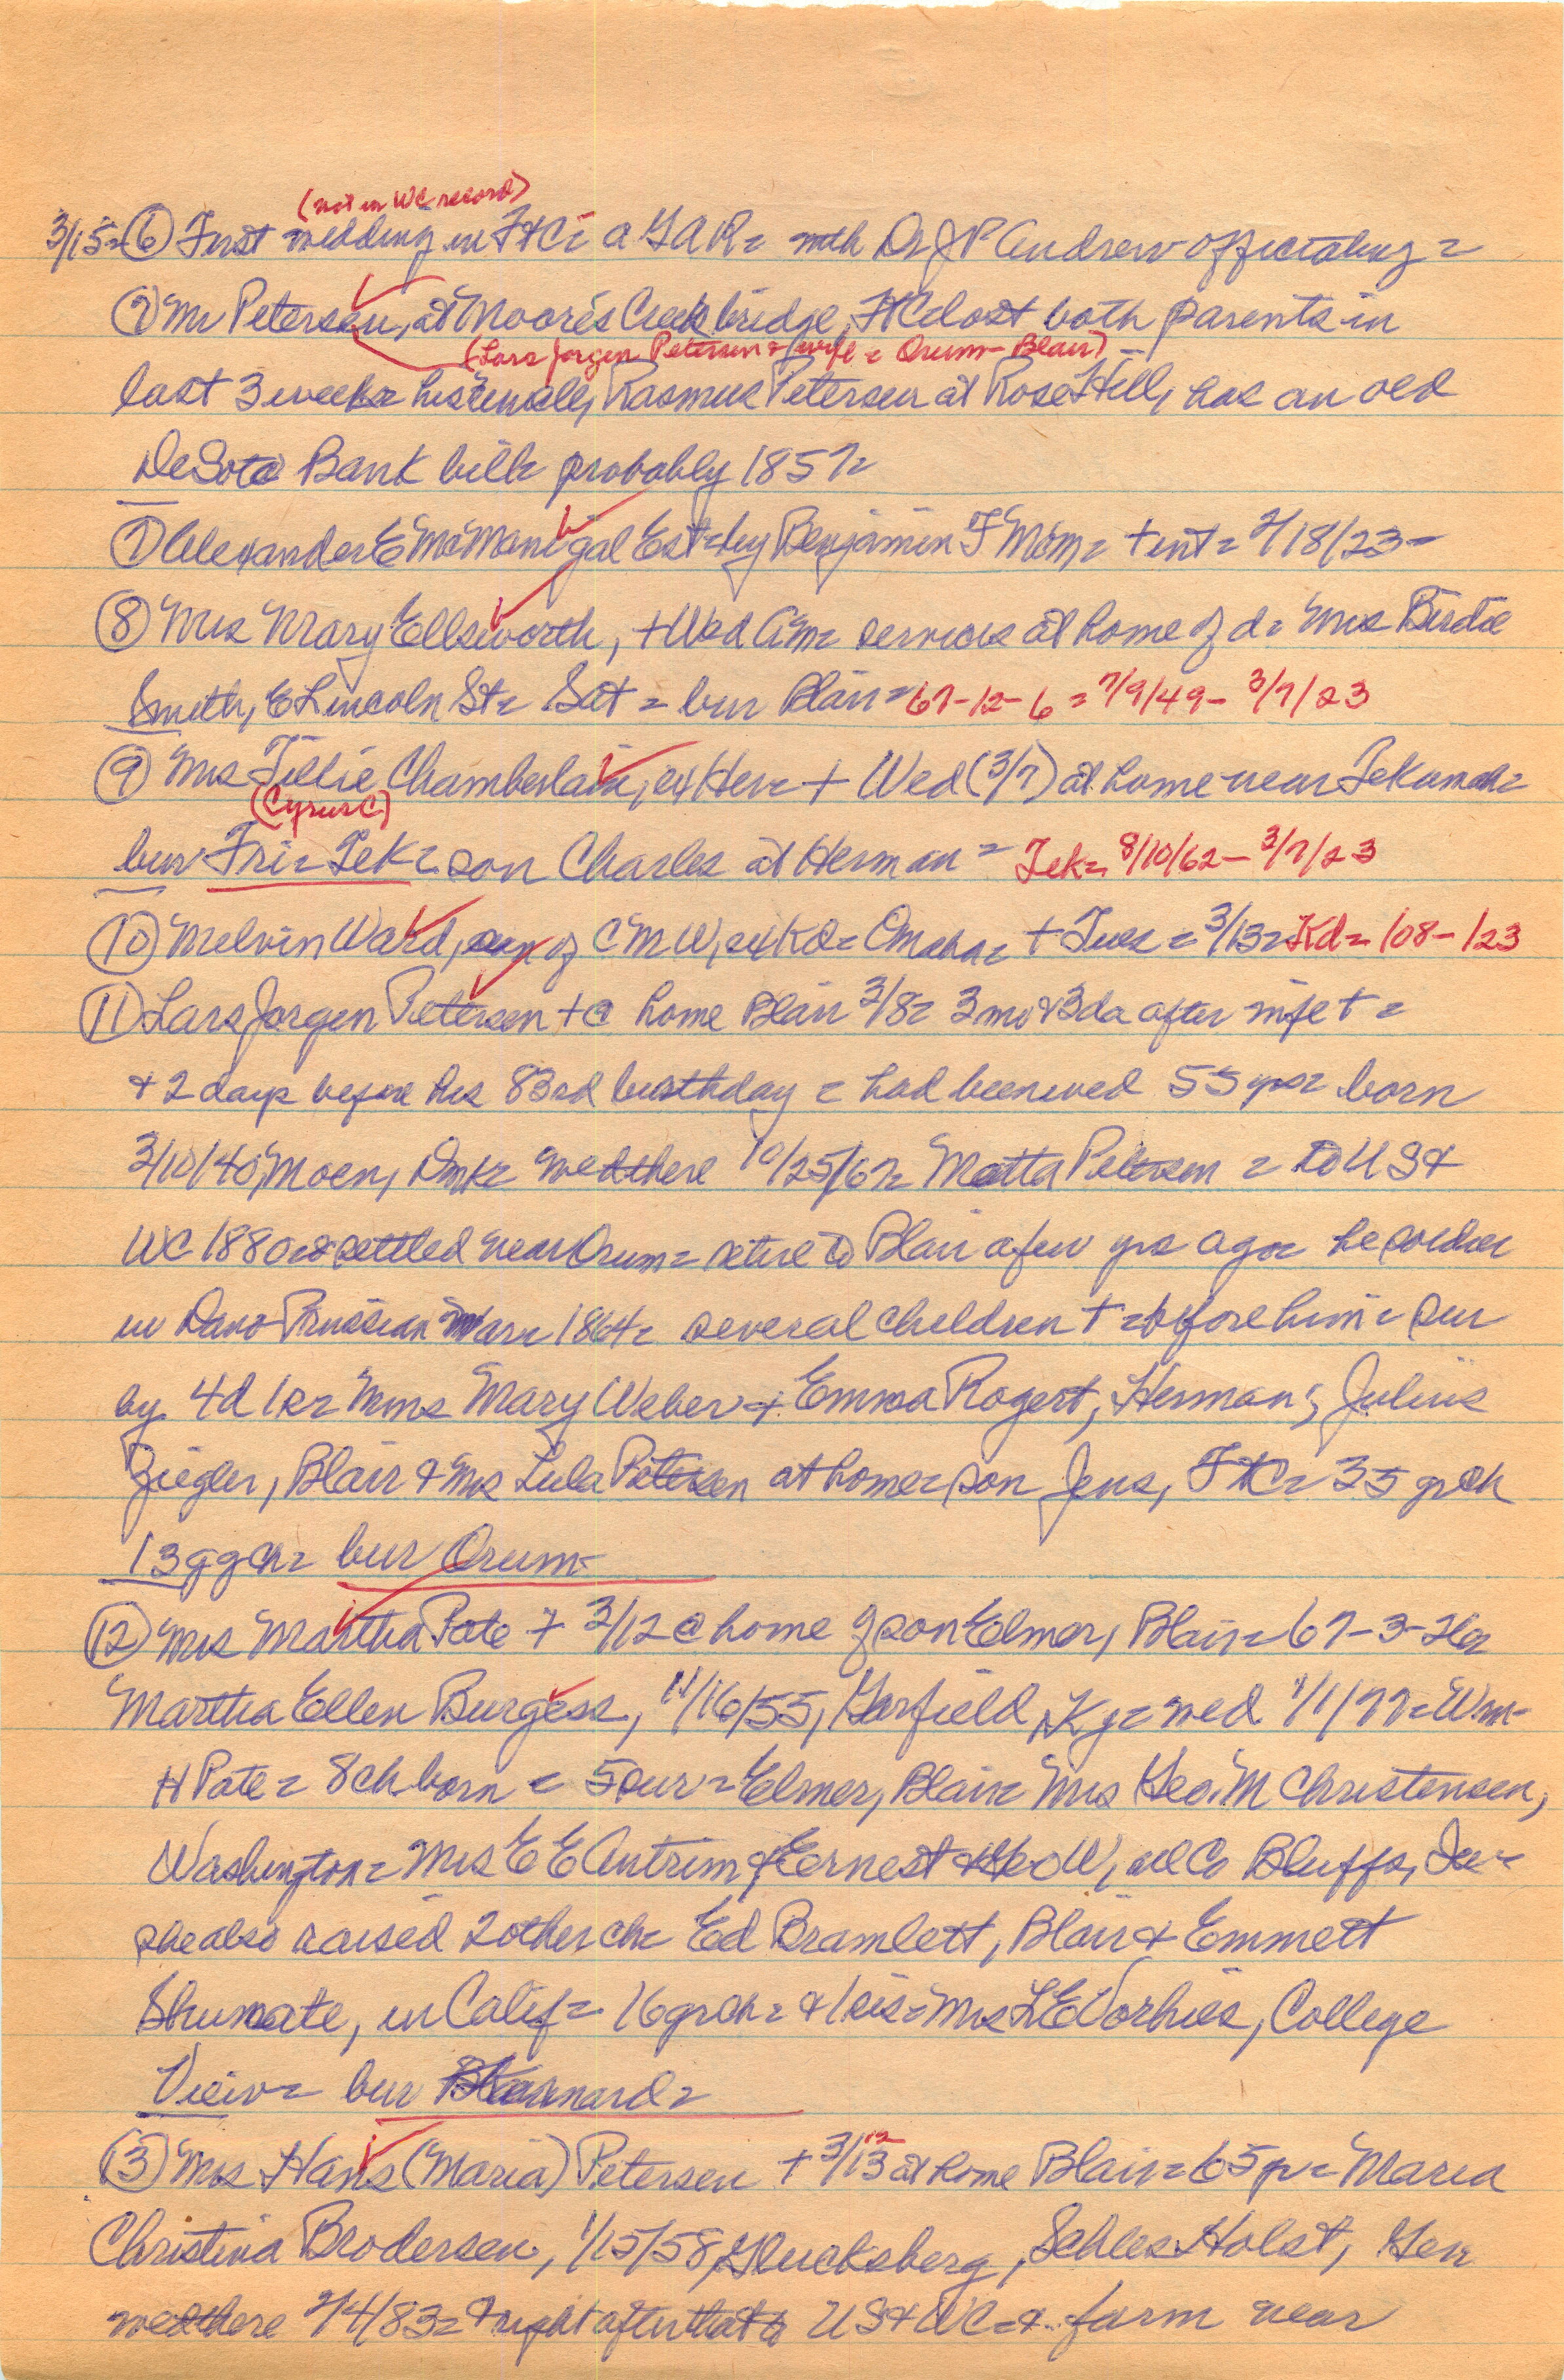 (not in WC record)
3/15= ⑥ First wedding in Ft C= a GAR= with Dr J P Andrew officiating=
⑦ Mr Petersen, at Moore's Creek bridge, Ft C lost both parents in
(Lars Jorgen Petersen & wife = Orum - Blair)
last 3 weeks= his uncle, Rasmus Petersen at Rose Hill, has an old
DeSoto Bank bill= probably 1857=
⑦ Alexander E McManigal Est= by Benjamin F McM= + int= 2/18/23-
⑧ Mrs Mary Ellsworth, + Wed AM= services at home of d= Mrs Birdie
Smith, E Lincoln St= Sat = bur Blair= 67-12-6 = 7/9/49 - 3/7/23
⑨ Mrs Tillie Chamberlain, ex Her= + Wed (3/7) at home near Tekamah=
(Cyrus C)
bur Fri= Tek= son Charles at Herman = Tek= 8/10/62 - 3/7/23
⑩ Melvin Ward, son of C M W, ex Kd= Omaha= + Tues = 3/13= Kd= 108-123
⑪ Lars Jorgen Petersen + @ home Blair 3/8= 3 mo & 3 da after wife + =
& 2 days before his 83rd birthday = had been wed 55 yrs= born
3/10/40, Moen, Dmk= wed there 10/25/67= Matta Petersen = to US &
WC 1880= & settled near Orum= retire to Blair a few yrs ago= he soldier
in Dano Prussian War= 1864= several children + = before him = sur
by 4d 1s= Mms Mary Weber & Emma Rogert, Herman; Julius
Ziegler, Blair & Mrs Lula Petersen at home= son Jens, Ft C= 35 grch
13 ggch= bur Orum-
⑫ Mrs Martha Pate + 3/12 @ home of son Elmer, Blair= 67-3-26=
Martha Ellen Burgess, 11/16/55, Garfield, Ky= wed 1/1/77= Wm-
H Pate = 8 ch born = 5 sur = Elmer, Blair= Mrs Geo. M Christensen,
Washington= Mrs E E Antrim & Ernest & Geo W, all Co Bluffs, Ia-
she also raised 2 other ch= Ed Bramlett, Blair & Emmett
Shumate, in Calif= 16 grch= & 1 sis= Mrs L E Vorhies, College
View= bur Kennard=
⑬ Mrs Hans (Maria) Petersen + 3/13 12 at home Blair= 65 yr= Maria
Christina Brodersen, 1/15/58, Glucksberg, Schles Holst, Ger
wed there 2/4/83= & right after that to US & WC= & farm near